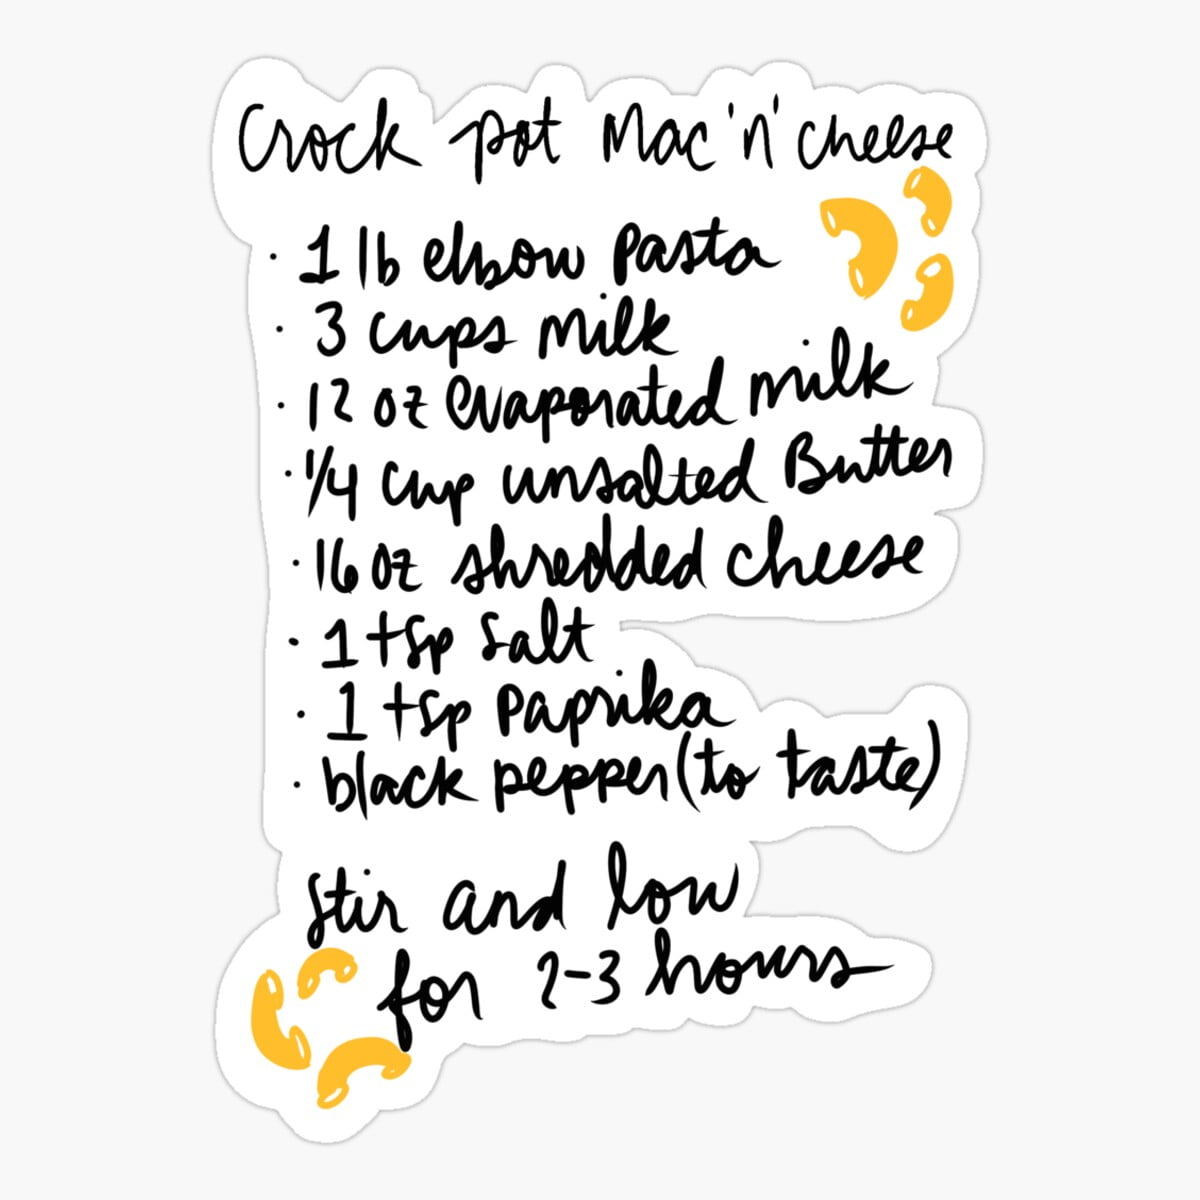 Crock pot Mac 'n' cheese
· 1 lb elbow pasta
· 3 cups milk
· 12 oz evaporated milk
· 1/4 cup unsalted Butter
· 16 oz shredded cheese
· 1 tsp salt
· 1 tsp paprika
· black pepper (to taste)
stir and low
for 2-3 hours